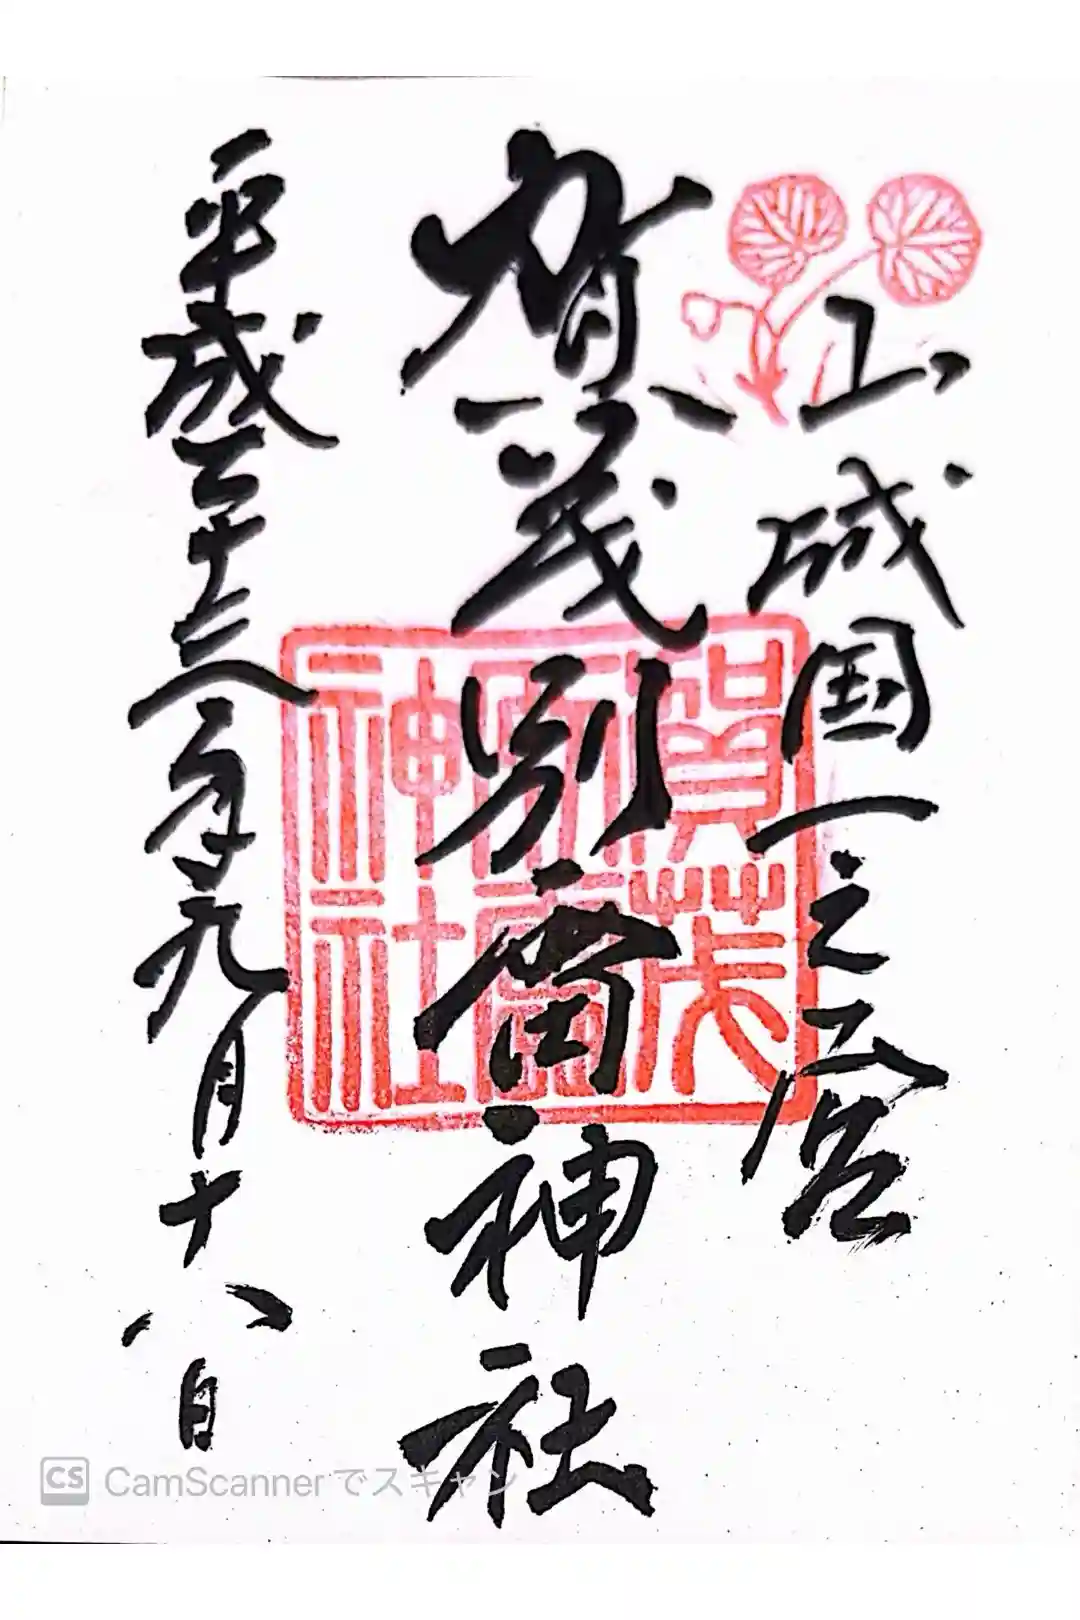 山城国一之宮
賀茂別雷神社
平成二十六年九月十八日
賀茂
別雷
神社
CS CamScannerでスキャン